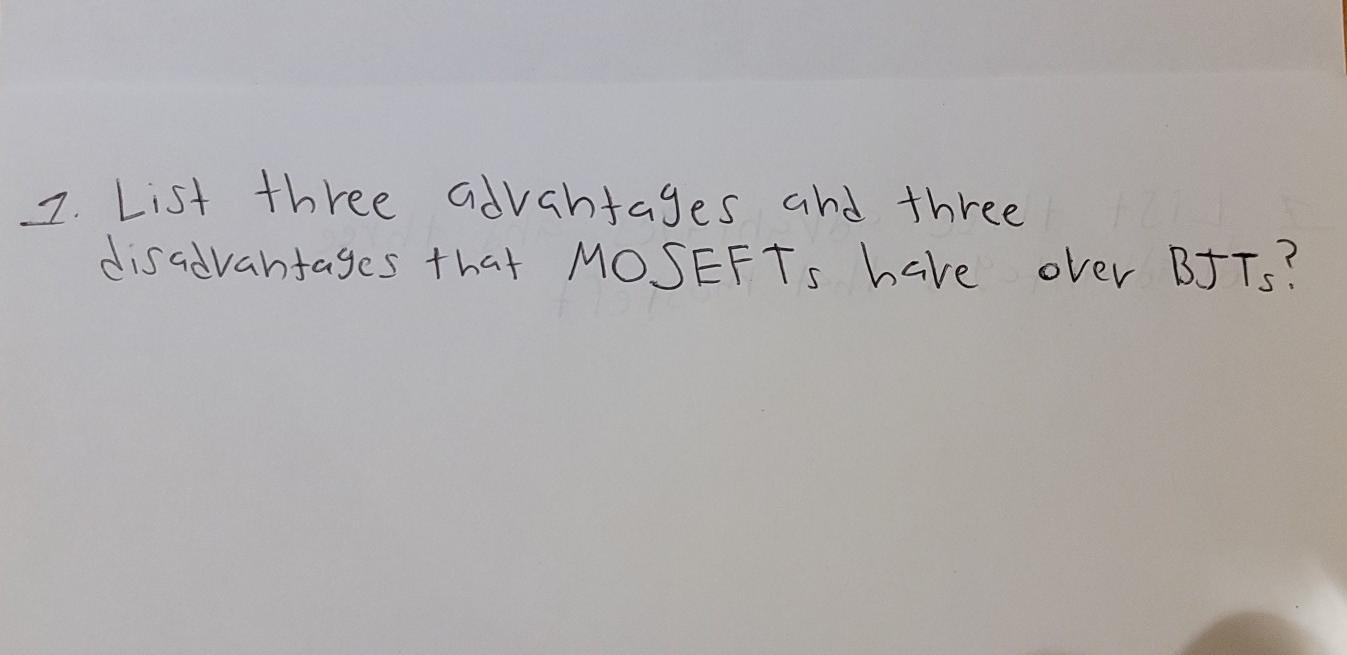 1. List three advantages and three
disadvantages that MOSEFTs have over BJTs?